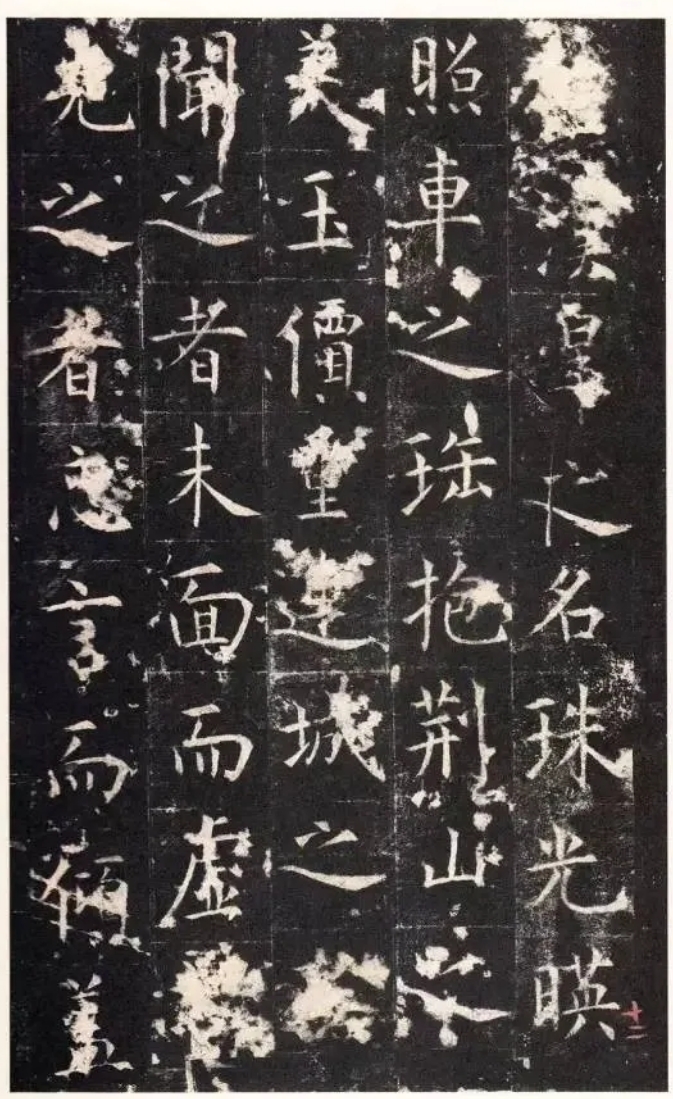 漢皇之名珠光暎
照車之珤抱荊山之
美玉價重連城之
聞之者未面而虛
見之者忘言而傾蓋
十二